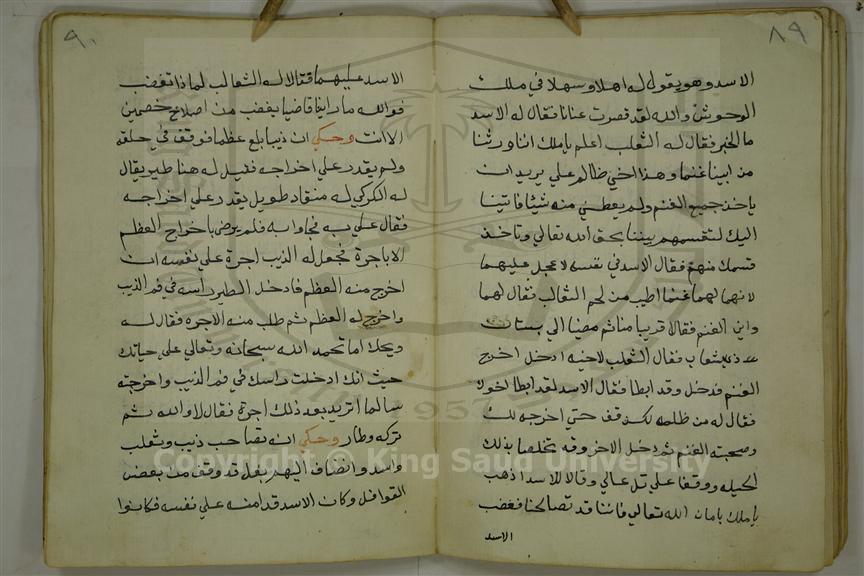 ٨٩
الاسد وهو يقول له اهلا وسهلا في ملك
الوحوش والله لقد قصرت عنانا فقال له الاسد
ما الخبر فقال له الثعلب اعلم يا ملك اننا ورثنا
من ابينا غنما وهذا اخي ظالم علي يريد ان
ياخذ جميع الغنم ولم يعطني منه شيئا فاتينا
اليك لتقسمهم بيننا بحق الله تعالي وتاخذ
قسمك منهم فقال الاسد في نفسه لاعجل عليهما
لانهما لهما غنما اطيب من لحم الثعالب فقال لهما
واين الغنم فقالا قريبا منا ثم مضيا الي بستان
فقال الثعلب لاخيه ادخل اخرج
الغنم فدخل وقد ابطا فقال الاسد لقد ابطا اخوك
فقال له من ظلمه لكن قف حتي اخرجه لك
وصحبته الغنم ثم دخل الاخر وقد تخلصا بذلك
الحيله ووقفا علي تل عالي وقالا للاسد اذهب
يا ملك بامان الله تعالي فاننا قد تصالحنا فغضب
الاسد
٩٠
الاسد عليهما فقالا له الثعالب لماذا تغضب
فوالله ما راينا قاضيا يغضب من اصلاح خصمين
الا انت وحكي ان ذيبا بلع عظما فوقف في حلقه
ولم يقدر علي اخراجه فقيل له هنا طير يقال
له الكركي له منقاد طويل يقدر علي اخراجه
فقال علي به فجاوا به فلم يرضي باخراج العظم
الا باجرة فجعل له الذيب اجرة علي نفسه ان
اخرج منه العظم فادخل الطير راسه في فم الذيب
واخرج له العظم ثم طلب منه الاجره فقال له
ويحك اما تحمد الله سبحانه وتعالي علي حياتك
حيث انك ادخلت راسك في فم الذيب واخرجته
سالما اتريد بعد ذلك اجرة فقال لا والله ثم
تركه وطار وحكي انه تصاحب ذيب وثعلب
واسد وانضاف اليهم بغل قد وقف من بعض
القوافل وكان الاسد قد امنه علي نفسه فكانوا
Copyright © King Saud University
1957